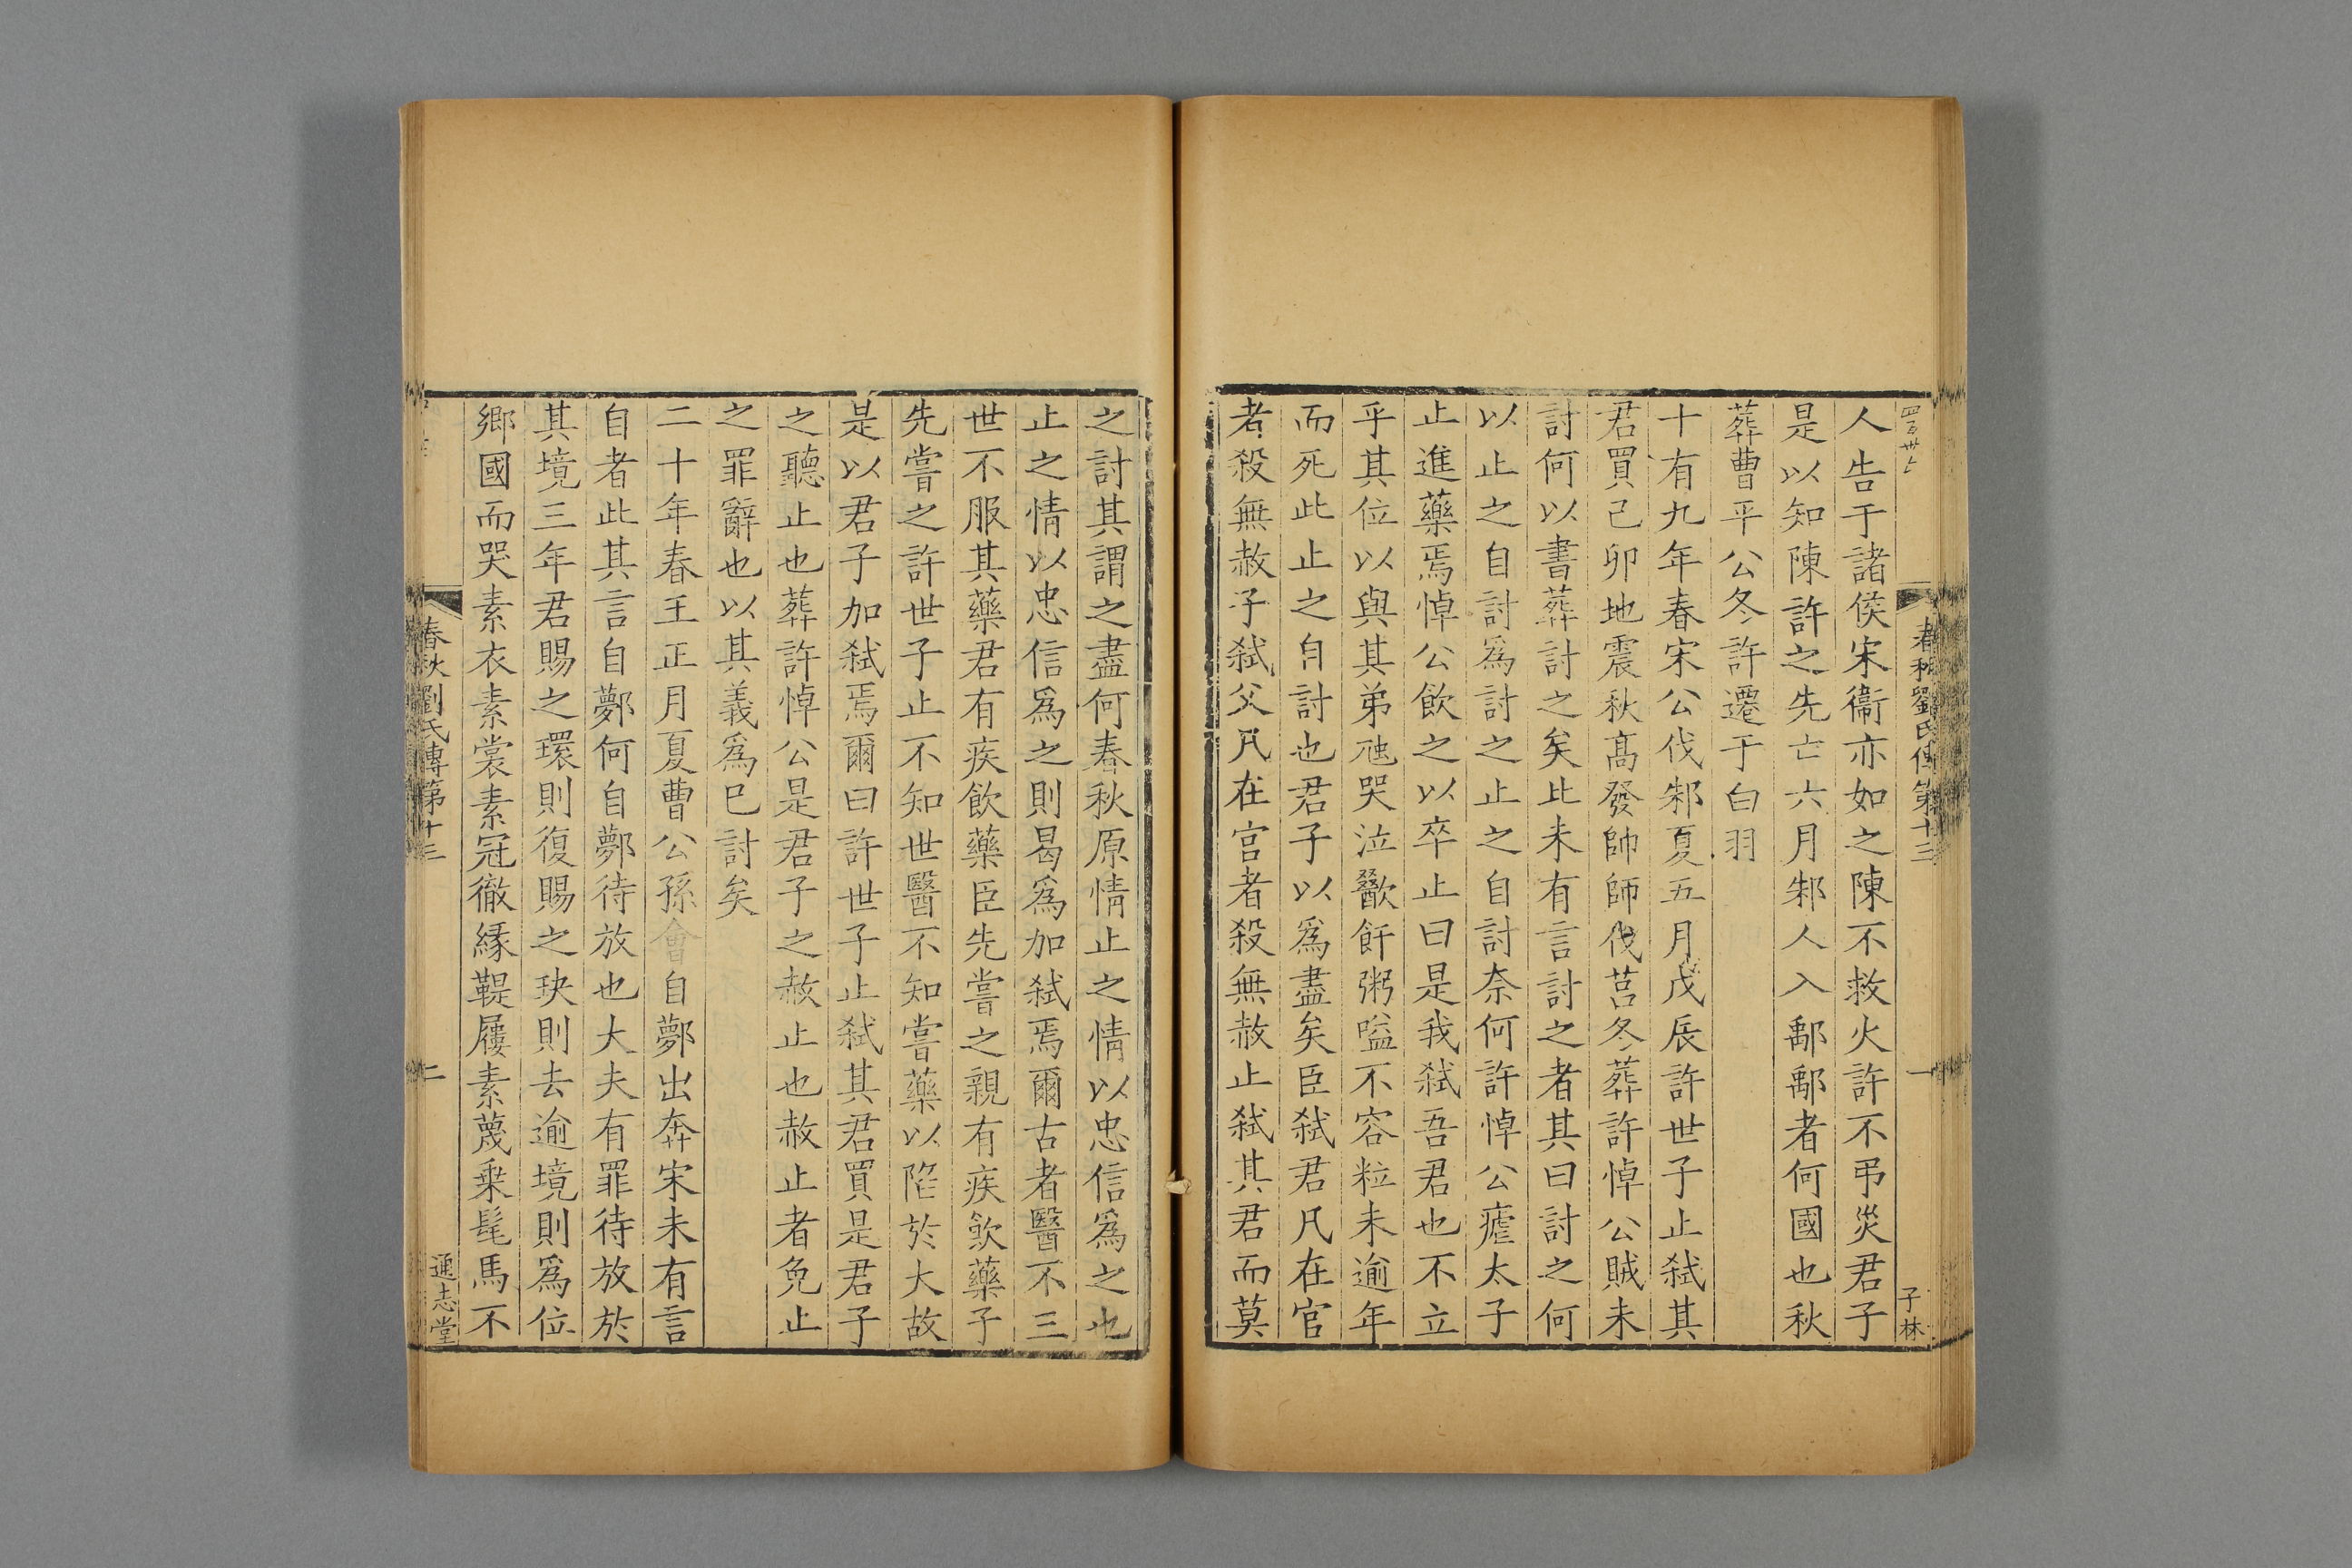 春秋劉氏傳第十三
一
子林
人告于諸侯宋衞亦如之陳不救火許不弔災君子
是以知陳許之先亡六月邾人入鄅鄅者何國也秋
葬曹平公冬許遷于白羽
十有九年春宋公伐邾夏五月戊辰許世子止弑其
君買己卯地震秋髙發帥師伐莒冬葬許悼公賊未
討何以書葬討之矣此未有言討之者其曰討之何
以止之自討爲討之止之自討奈何許悼公瘧太子
止進藥焉悼公飲之以卒止曰是我弑吾君也不立
乎其位以與其弟虺哭泣歠飦粥嗌不容粒未逾年
而死此止之自討也君子以爲盡矣臣弑君凡在官
者殺無赦子弑父凡在宫者殺無赦止弑其君而莫
之討其謂之盡何春秋原情止之情以忠信爲之也
止之情以忠信爲之則曷爲加弑焉爾古者醫不三
世不服其藥君有疾飲藥臣先嘗之親有疾飲藥子
先嘗之許世子止不知世醫不知嘗藥以陷於大故
是以君子加弑焉爾曰許世子止弑其君買是君子
之聽止也葬許悼公是君子之赦止也赦止者免止
之罪辭也以其義爲已討矣
二十年春王正月夏曹公孫會自鄸出奔宋未有言
自者此其言自鄸何自鄸待放也大夫有罪待放於
其境三年君賜之環則復賜之玦則去逾境則爲位
鄉國而哭素衣素裳素冠徹緣鞮屨素蔑乗髦馬不
春秋劉氏傳第十三
二
通志堂